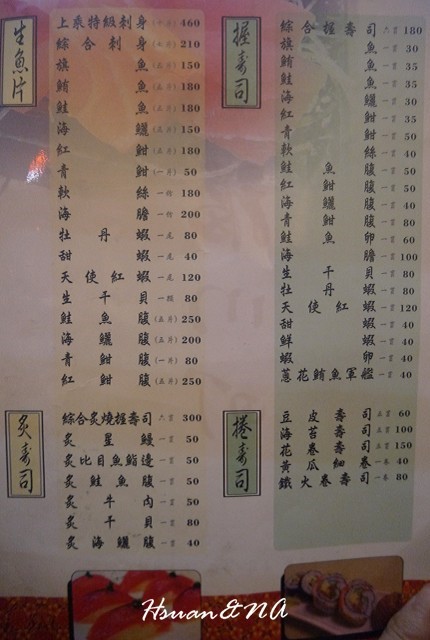 生魚片
上乘特級刺身(十片) 460
綜合刺身(七片) 210
旗魚(五片) 150
鮪魚(五片) 180
鮭魚(五片) 180
海鱺(五片) 150
紅魽(五片) 180
青魽(一片) 50
軟絲一份 180
海膽一份 200
牡丹蝦一尾 80
甜蝦一尾 40
天使紅蝦一尾 120
生干貝一顆 80
鮭魚腹(五片) 250
海鱺腹(五片) 200
青魽腹(一片) 80
紅魽腹(五片) 250
炙壽司
綜合炙燒握壽司六貫 300
炙星鰻一貫 50
炙比目魚鰭邊一貫 50
炙鮭魚腹一貫 50
炙牛肉一貫 50
炙干貝一貫 80
炙海鱺腹一貫 40
握壽司
綜合握壽司六貫 180
旗魚一貫 30
鮪魚一貫 35
鮭魚一貫 35
海鱺一貫 30
紅魽一貫 35
青魽一貫 50
軟絲一貫 40
鮭魚腹一貫 50
紅魽腹一貫 50
海鱺腹一貫 40
青魽腹一貫 80
鮭魚卵一貫 60
海膽一貫 100
生干貝一貫 80
牡丹蝦一貫 80
天使紅蝦一貫 120
甜蝦一貫 40
鮮蝦一貫 40
蝦卵一貫 40
蔥花鮪魚軍艦一貫 40
捲壽司
豆皮壽司五貫 60
海苔壽司五貫 100
花卷壽司五貫 150
黃瓜細卷一卷 40
鐵火卷壽司一卷 80
Hsuan&NA